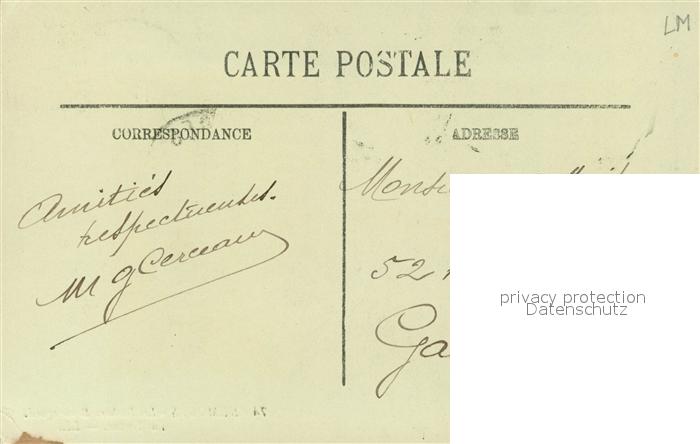 LM
CARTE POSTALE
CORRESPONDANCE
ADRESSE
Amitiés
respectueuses.
M G Cerceau
Monsi
52
Ga
privacy protection
Datenschutz